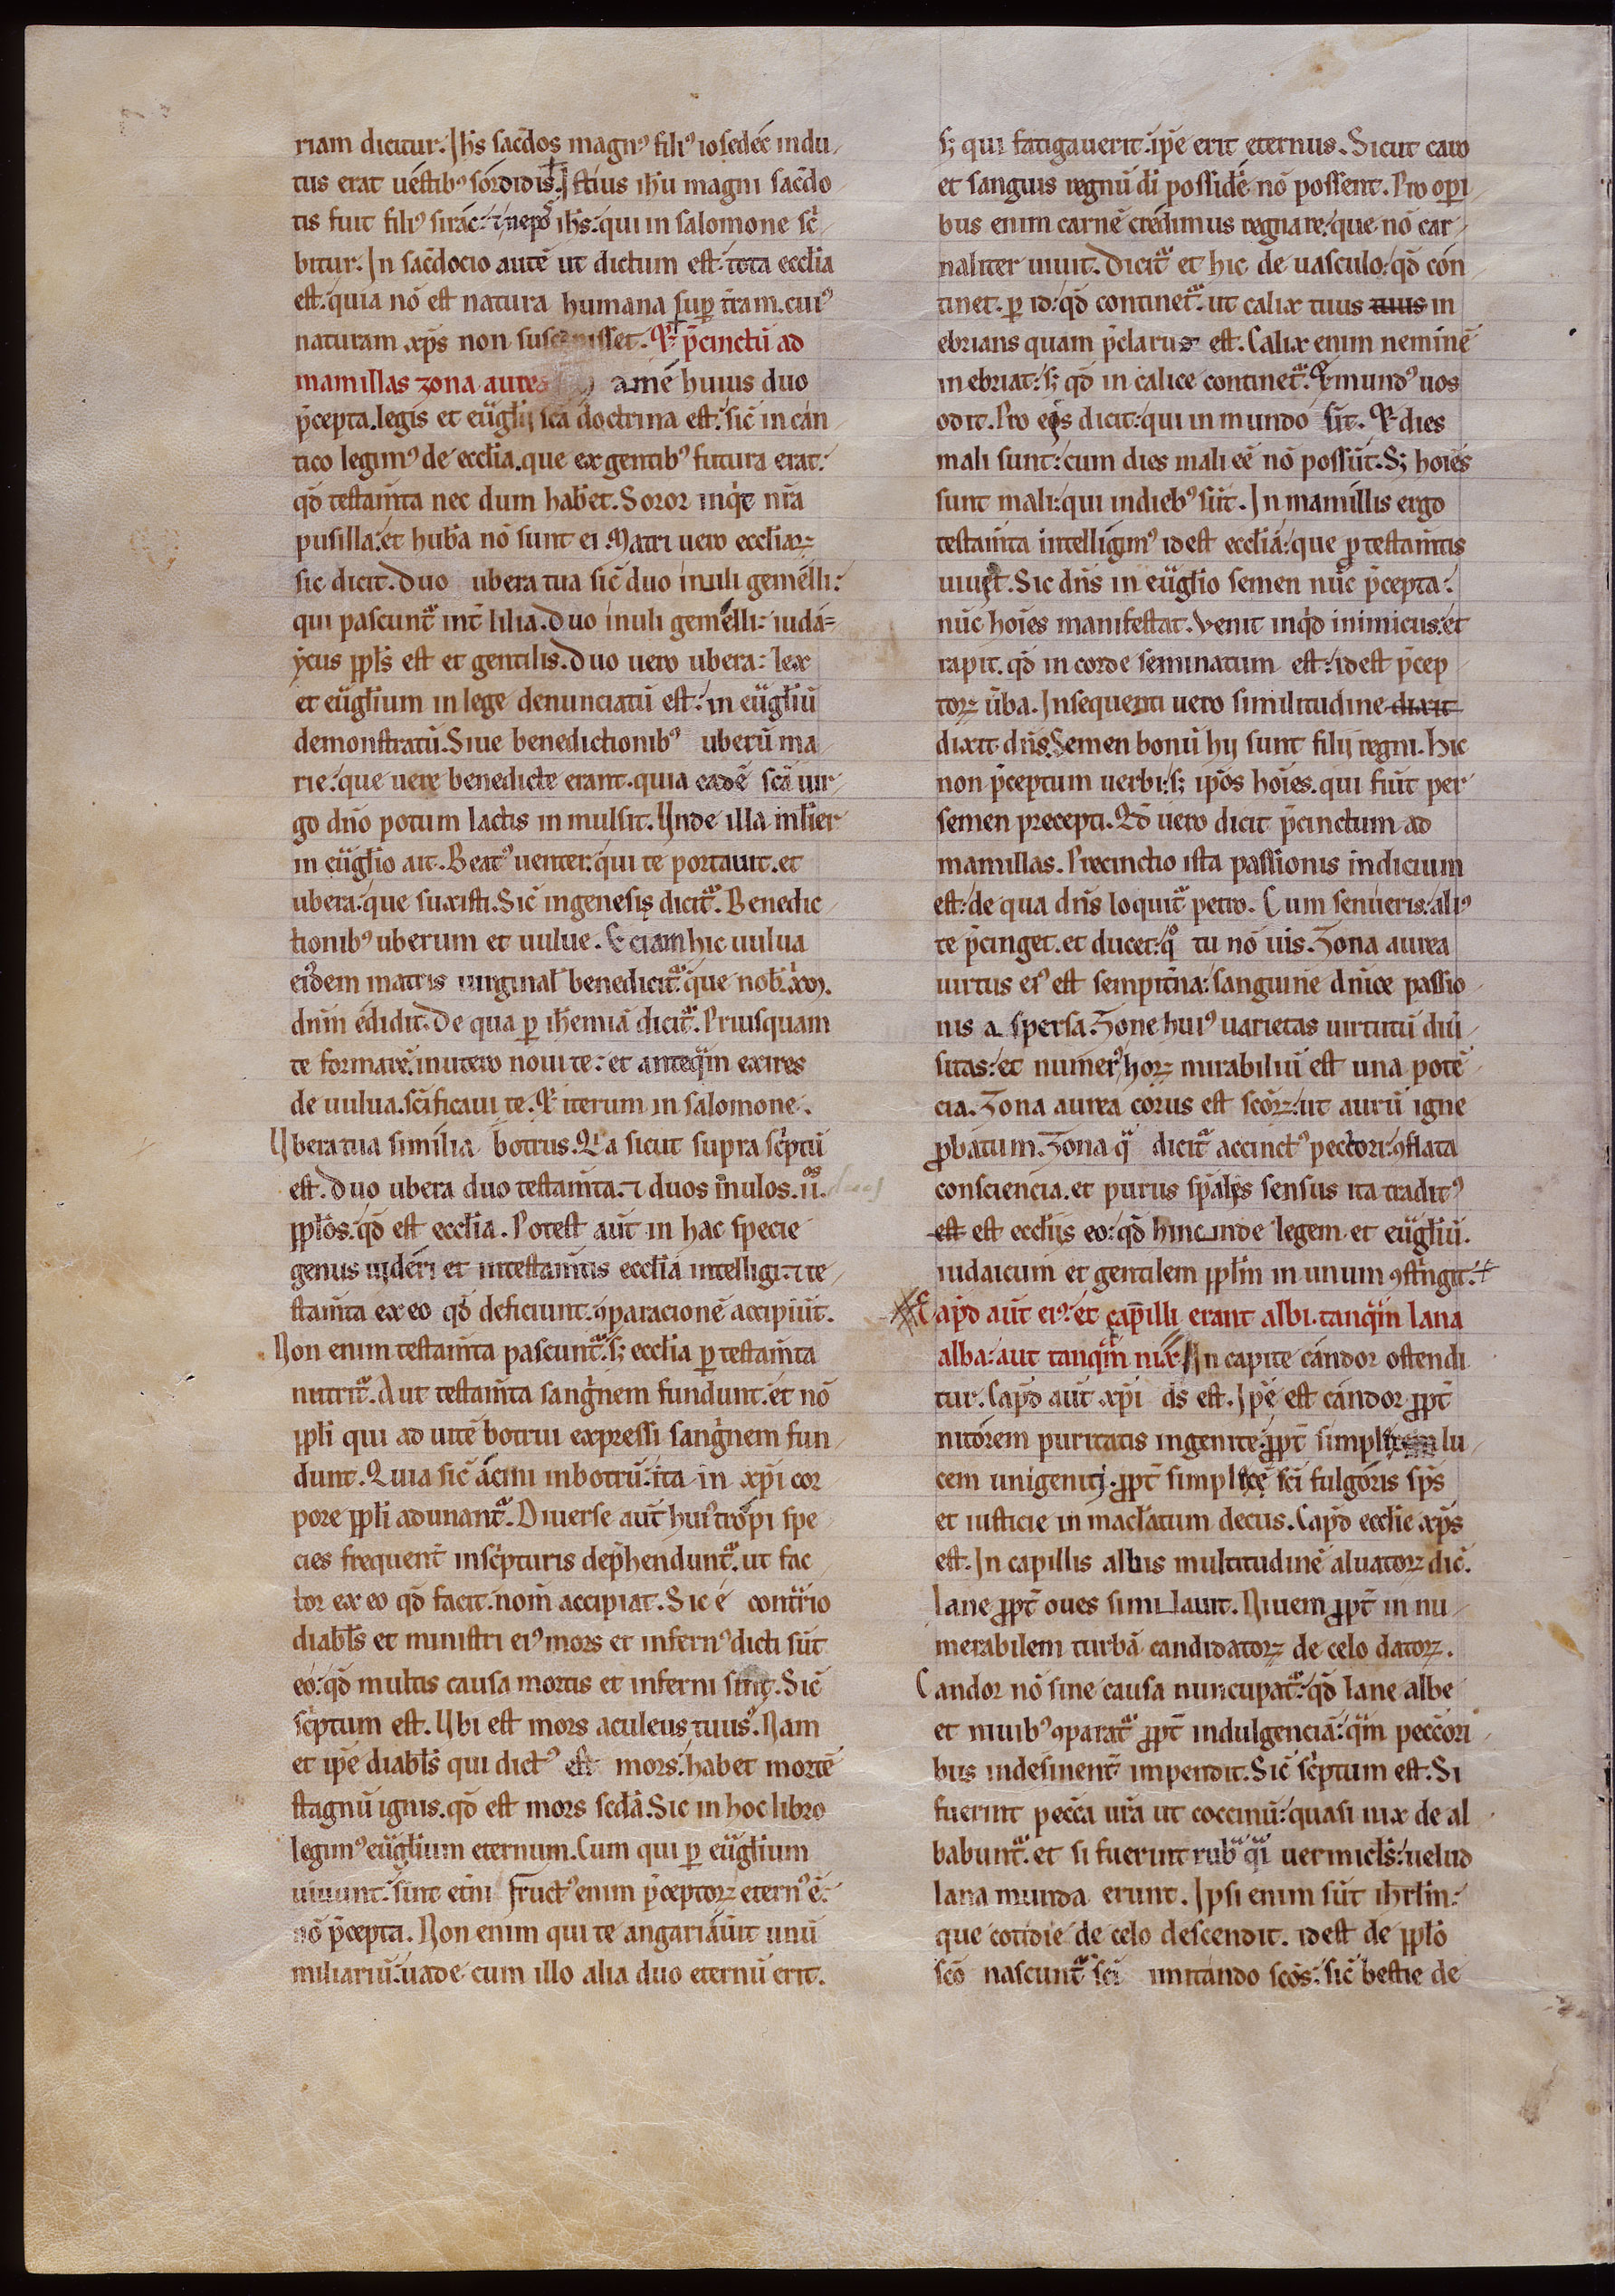 riam dicitur. Ih̅s sac̅dos magnꝰ filiꝰ iosedec̅ indu
tus erat uestibꝰ sordidis. Istius ih̅u magni sac̅do
tis fuit filiꝰ sirac: ⁊ nepos ih̅s: qui in salomone sc̅
bitur. In sac̅docio aute̅ ut dictum est. tota eccl̅ia
est. quia no̅ est natura humana sup̲ t̅ram. cuiꝰ
naturam xp̅s non suscepisset. Et p̅cinctu̅ ad
mamillas zona aurea ame̅ huius duo
p̅cepta. legis et eu̅gl̅ij sc̅a doctrina est. sic̅ in can
tico legimꝰ de eccl̅ia. que ex gentibꝰ futura erat:
qd̅ testam̅ta nec dum hab̅et. Soror inqͥt nr̅a
pusilla: et hub̅a no̅ sunt ei. Matri uero eccl̅iaꝝ
sic dicit. Duo ubera tua sic̅ duo inuli gemelli:
qui pascunt᷑ int̅ lilia. Duo inuli gemelli: iuda
ycus ppl̅s est et gentilis. Duo uero ubera: lex
et eu̅gl̅ium in lege denunciatu̅ est: in eu̅gl̅iu̅
demonstratu̅. Siue benedictionibꝰ uberu̅ ma
rie: que uere benedicte erant. quia eade̅ sc̅a uir
go dn̅o potum lactis in mulsit. Unde illa ml̅ier
in eu̅gl̅io ait. Beatꝰ uenter. qui te portauit. et
ubera: que suxisti. Sic̅ in genesis dicit᷑. Benedic
tionibꝰ uberum et uulue. Et eciam hic uulua
eiꝰdem matris uirginal̅ benedicit᷑ que nob̅ xp̅m.
dn̅m edidit. De qua p̲ ih̅emia̅ dicit᷑. Priusquam
te formare̅. in utero noui te: et anteqᷓm exires
de uulua. sc̅ificaui te. Et iterum in salomone.
Ubera tua similia botrus. Qͥa sicut supra sc̅ptu̅
est. Duo ubera duo testam̅ta. ⁊ duos inulos. ii̅.
ppl̅os. qd̅ est eccl̅ia. Potest aut̅ in hac specie
genus uideri et in testam̅tis eccl̅ia intelligi. ⁊ te
stam̅ta ex eo qd̅ deficiunt. ꝯparacione̅ accipiu̅t.
Non enim testam̅ta pascunt᷑. sꝫ eccl̅ia p̲ testam̅ta
nutrit᷑. Aut testam̅ta sangͥnem fundunt. et no̅
ppl̅i qui ad uite̅ botrui expressi sangͥnem fun
dunt. Quia sic̅ acini in botru̅: ita in xp̅i cor
pore ppl̅i adunant᷑. Diuerse aut̅ huiꝰ tropi spe
cies frequent̅ in sc̅pturis dep̅hendunt᷑. ut fac
tor ex eo qd̅ facit. nom̅ accipiat. Sic e̅ contᷓrio
diabl̅s et ministri eiꝰ mors et infernꝰ dicti su̅t
eo: qd̅ multis causa mortis et inferni sint. Sic̅
sc̅ptum est. Ubi est mors aculeus tuus. Nam
et ip̅e diabl̅s qui dictꝰ est mors. habet morte̅
stagnu̅ ignis. qd̅ est mors sc̅da̅. Sic in hoc libro
legimꝰ eu̅gl̅ium eternum. Cum qui p̲ eu̅gl̅ium
uiuunt. sint et̅ni fructꝰ enim p̅ceptoꝝ eternꝰ e̅.
no̅ p̅cepta. Non enim qui te angariau̅it unu̅
miliariu̅: uade cum illo alia duo eternu̅ erit.
sꝫ qui fatigauerit. ip̅e erit eternus. Sicut caro
et sanguis regnu̅ di̅ posside̅ no̅ possent. Pro operi
bus enim carne̅ credimus regnare: que no̅ car
naliter uiuit. Dicit᷑ et hic de uasculo: qd̅ con
tinet. p̲ id: qd̅ continet᷑. ut calix tuus tuus in
ebrians quam p̅clarus est. Calix enim nemine̅
inebriat: sꝫ qd̅ in calice continet᷑. Et mundꝰ uos
odit. Pro eis dicit: qui in mundo su̅t. Et dies
mali sunt: cum dies mali ee̅ no̅ possu̅t. Sꝫ ho̅ies
sunt mali: qui in diebꝰ su̅t. In mamillis ergo
testam̅ta intelligimꝰ id est eccl̅ia̅: que p̲ testam̅tis
uiuet. Sic dn̅s in eu̅gl̅io semen nu̅c p̅cepta:
nu̅c ho̅ies manifestat. Venit inqͥd inimicus: et
rapit. qd̅ in corde seminatum est: id est p̅cep
toꝝ u̅ba. In sequenti uero similitudine dixit
dixit dn̅s. Semen bonu̅ hij sunt filij regni. Hic
non p̅ceptum uerbi: sꝫ ip̅os ho̅ies. qui fiu̅t per
semen precepti. Qd̅ uero dicit p̅cinctum ad
mamillas. Precinctio ista passionis indicium
est: de qua dn̅s loquit᷑ petro. Cum senueris: aliꝰ
te p̅cinget. et ducet: qͦ tu no̅ uis. Zona aurea
uirtus eiꝰ est sempit̅na: sanguine dn̅ice passio
nis aspersa. Zone huiꝰ uarietas uirtutu̅ diu̅
sitas: et numerꝰ hoꝝ mirabiliu̅ est una pote̅
cia. Zona aurea corus est sc̅oꝝ: ut auru̅ igne
p̲batum. Zona qᷓ dicit᷑ accinctꝰ pectori: ꝯflata
consciencia. et purus sp̅alis sensus ita traditꝰ
est est eccl̅ijs eo: qd̅ hinc inde legem et eu̅gl̅iu̅.
iudaicum et gentilem ppl̅m in unum ꝯst̅ngit.
Cap̅d aut̅ eiꝰ: et capilli erant albi. tanqᷓm lana
alba: aut tanqᷓm nix. In capite candor ostendi
tur. Cap̅d aut̅ xp̅i ds̅ est. Ip̅e est candor ppt̅
nitorem puritatis ingenite: ppt̅ simplicem lu
cem unigeniti. ppt̅ simplice̅ sc̅i fulgoris sp̅s
et iusticie in macl̅atum decus. Cap̅d eccl̅ie xp̅s
est. In capillis albis multitudine̅ aluatoꝝ dic̅.
Lane ppt̅ oues similauit. Niuem ppt̅ in nu
merabilem turba̅ candidatoꝝ de celo datoꝝ.
Candor no̅ sine causa nuncupat᷑: qd̅ lane albe
et niuibꝰ ꝯparat᷑ ppt̅ indulgencia̅: qᷓm pecc̅ori
bus indesinent̅ impendit. Sic̅ sc̅ptum est. Si
fuerint pecc̅a ur̅a ut coccinu̅: quasi nix de al
babunt᷑. et si fuerint rubᷓ qᷓi uermicl̅s: uelud
lana munda erunt. Ipsi enim su̅t ih̅rl̅m:
que cotidie de celo descendit. id est de ppl̅o
sc̅o nascunt᷑ sc̅i imitando sc̅os: sic̅ bestie de